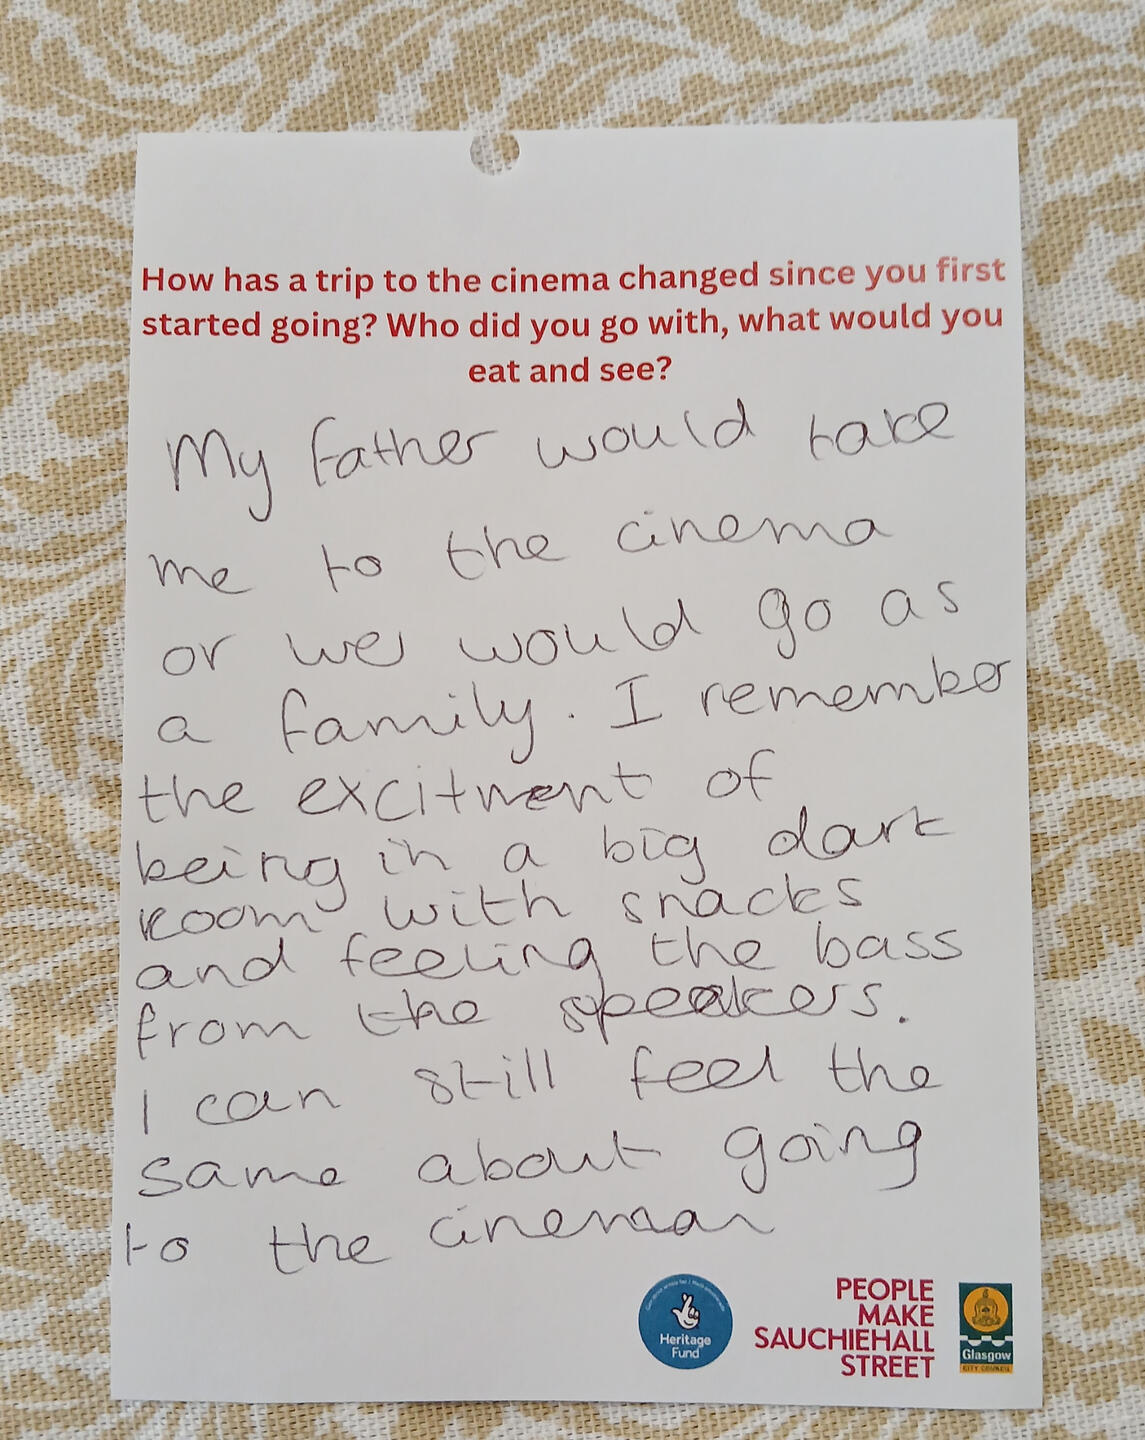 How has a trip to the cinema changed since you first
started going? Who did you go with, what would you
eat and see?
My father would take
me to the cinema
or we would go as
a family. I remember
the excitment of
being in a big dark
room with snacks
and feeling the bass
from the speakers.
I can still feel the
same about going
to the cinema
Heritage
Fund
PEOPLE
MAKE
SAUCHIEHALL
STREET
Glasgow
CITY COUNCIL